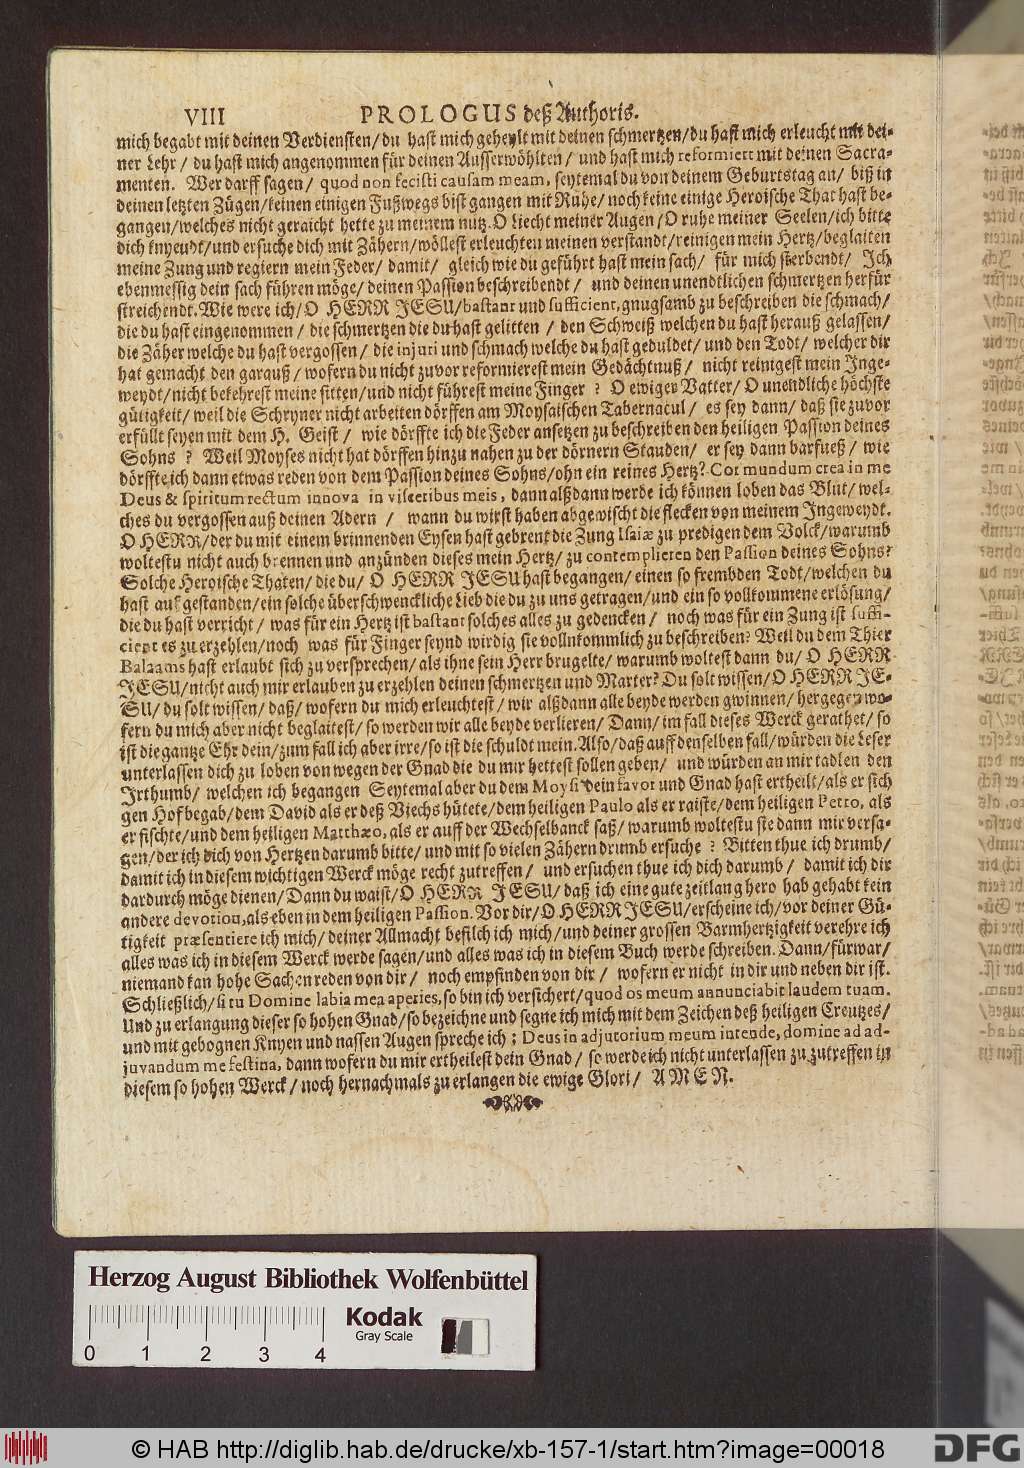 VIII PROLOGUS deß Authoris.
mich begabt mit deinen Verdiensten/du hast mich geheylt mit deinen schmertzen/du hast mich erleucht mit dei-
ner Lehr/ du hast mich angenommen für deinen Ausserwöhlten/ und hast mich reformiert mit deinen Sacra-
menten. Wer darff sagen/ quod non fecisti causam meam, seytemal du von deinem Geburtstag an/ biß in
deinen letzten Zügen/keinen einigen Fußwegs bist gangen mit Ruhe/ noch keine einige Heroische That hast be-
gangen/welches nicht geraicht hette zu meinem nutz. O Liecht meiner Augen/O ruhe meiner Seelen/ich bitte
dich knyendt/und ersuche dich mit Zähern/wöllest erleuchten meinen verstandt/reinigen mein Hertz/beglaiten
meine Zung und regiern mein Feder/ damit/ gleich wie du geführt hast mein sach/ für mich sterbendt/ Ich
ebenmessig dein sach führen möge/deinen Passion beschreibendt/ und deinen unendtlichen schmertzen herfür
streichendt. Wie were ich/O HERR JESU/bastant und sufficient, gnugsamb zu beschreiben die schmach/
die du hast eingenommen/ die schmertzen die du hast gelitten/ den Schweiß welchen du hast herauß gelassen/
die Zäher welche du hast vergossen/ die injuri und schmach welche du hast geduldet/ und den Todt/ welcher dir
hat gemacht den garauß/ wofern du nicht zuvor reformierest mein Gedächtnuß/ nicht reinigest mein Inge-
weydt/nicht bekehrest meine sitten/und nicht führest meine Finger? O ewiger Vatter/O unendliche höchste
gütigkeit/ weil die Schryner nicht arbeiten dörffen am Moysaischen Tabernacul/ es sey dann/ daß sie zuvor
erfüllt seyen mit dem H. Geist/ wie dörffte ich die Feder ansetzen zu beschreiben den heiligen Passion deines
Sohns? Weil Moyses nicht hat dörffen hinzu nahen zu der dörnern Stauden/ er sey dann barfueß/ wie
dörffte ich dann etwas reden von dem Passion deines Sohns/ohn ein reines Hertz? Cor mundum crea in me
Deus & spiritum rectum innova in visceribus meis, dann alßdann werde ich können loben das Blut/ wel-
ches du vergossen auß deinen Adern/ wann du wirst haben abgewischt die flecken von meinem Ingeweydt.
O HERR/der du mit einem brinnenden Eysen hast gebrent die Zung Isaiæ zu predigen dem Volck/warumb
woltestu nicht auch brennen und anzünden dieses mein Hertz/ zu contemplieren den Passion deines Sohns?
Solche Heroische Thaten/die du/ O HERR JESU hast begangen/einen so frembden Todt/welchen du
hast außgestanden/ein solche überschwenckliche Lieb die du zu uns getragen/und ein so vollkommene erlösung/
die du hast verricht/ was für ein Hertz ist bastant solches alles zu gedencken/ noch was für ein Zung ist suffi-
cient es zu erzehlen/noch was für Finger seynd wirdig sie vollnkommlich zu beschreiben? Weil du dem Thier
Balaams hast erlaubt sich zu versprechen/als ihne sein Herr brugelte/ warumb woltest dann du/ O HERR
JESU/nicht auch mir erlauben zu erzehlen deinen schmertzen und Marter? Du solt wissen/O HERR JE-
SU/ du solt wissen/ daß/ wofern du mich erleuchtest/ wir alßdann alle beyde werden gwinnen/ hergegen wo-
fern du mich aber nicht beglaitest/so werden wir alle beyde verlieren/ Dann/im fall dieses Werck gerathet/ so
ist die gantze Ehr dein/zum fall ich aber irre/so ist die schuldt mein. Also/daß auff denselben fall/würden die Leser
unterlassen dich zu loben von wegen der Gnad die du mir hettest sollen geben/ und würden an mir tadlen den
Irthumb/ welchen ich begangen Seytemal aber du dem Moysi dein favor und Gnad hast ertheilt/als er sich
gen Hof begab/dem David als er deß Viechs hütete/dem heiligen Paulo als er raiste/dem heiligen Petro, als
er fischte/und dem heiligen Matthæo, als er auff der Wechselbanck saß/warumb woltestu sie dann mir versa-
gen/der ich dich von Hertzen darumb bitte/und mit so vielen Zähern drumb ersuche? Bitten thue ich drumb/
damit ich in diesem wichtigen Werck möge recht zutreffen/ und ersuchen thue ich dich darumb/ damit ich dir
dardurch möge dienen/Dann du waist/O HERR JESU/ daß ich eine gute zeitlang hero hab gehabt kein
andere devotion, als eben in dem heiligen Passion. Vor dir/O HERR JESU/erscheine ich/vor deiner Gü-
tigkeit præsentiere ich mich/deiner Allmacht befilch ich mich/und deiner grossen Barmhertzigkeit verehre ich
alles was ich in diesem Werck werde sagen/und alles was ich in diesem Buch werde schreiben. Dann/fürwar/
niemand kan hohe Sachen reden von dir/ noch empfinden von dir/ wofern er nicht in dir und neben dir ist.
Schließlich/si tu Domine labia mea aperies, so bin ich versichert/quod os meum annunciabit laudem tuam.
Und zu erlangung dieser so hohen Gnad/so bezeichne und segne ich mich mit dem Zeichen deß heiligen Creutzes/
und mit gebognen Knyen und nassen Augen spreche ich; Deus in adjutorium meum intende, domine ad ad-
juvandum me festina, dann wofern du mir ertheilest dein Gnad/ so werde ich nicht unterlassen zu zutreffen in
diesem so hohen Werck/noch hernachmals zu erlangen die ewige Glori/ AMEN.
Herzog August Bibliothek Wolfenbüttel
Kodak
Gray Scale
0 1 2 3 4
© HAB http://diglib.hab.de/drucke/xb-157-1/start.htm?image=00018
DFG